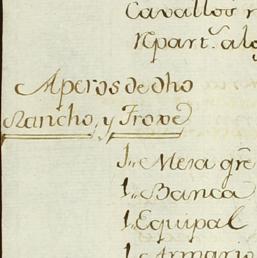 Cavallos r
Repart.ⁿ alg
Aperos de dho
Rancho, y Troxe
1,, Mesa gře
1,, Banca
1,, Equipal
1,, Armario